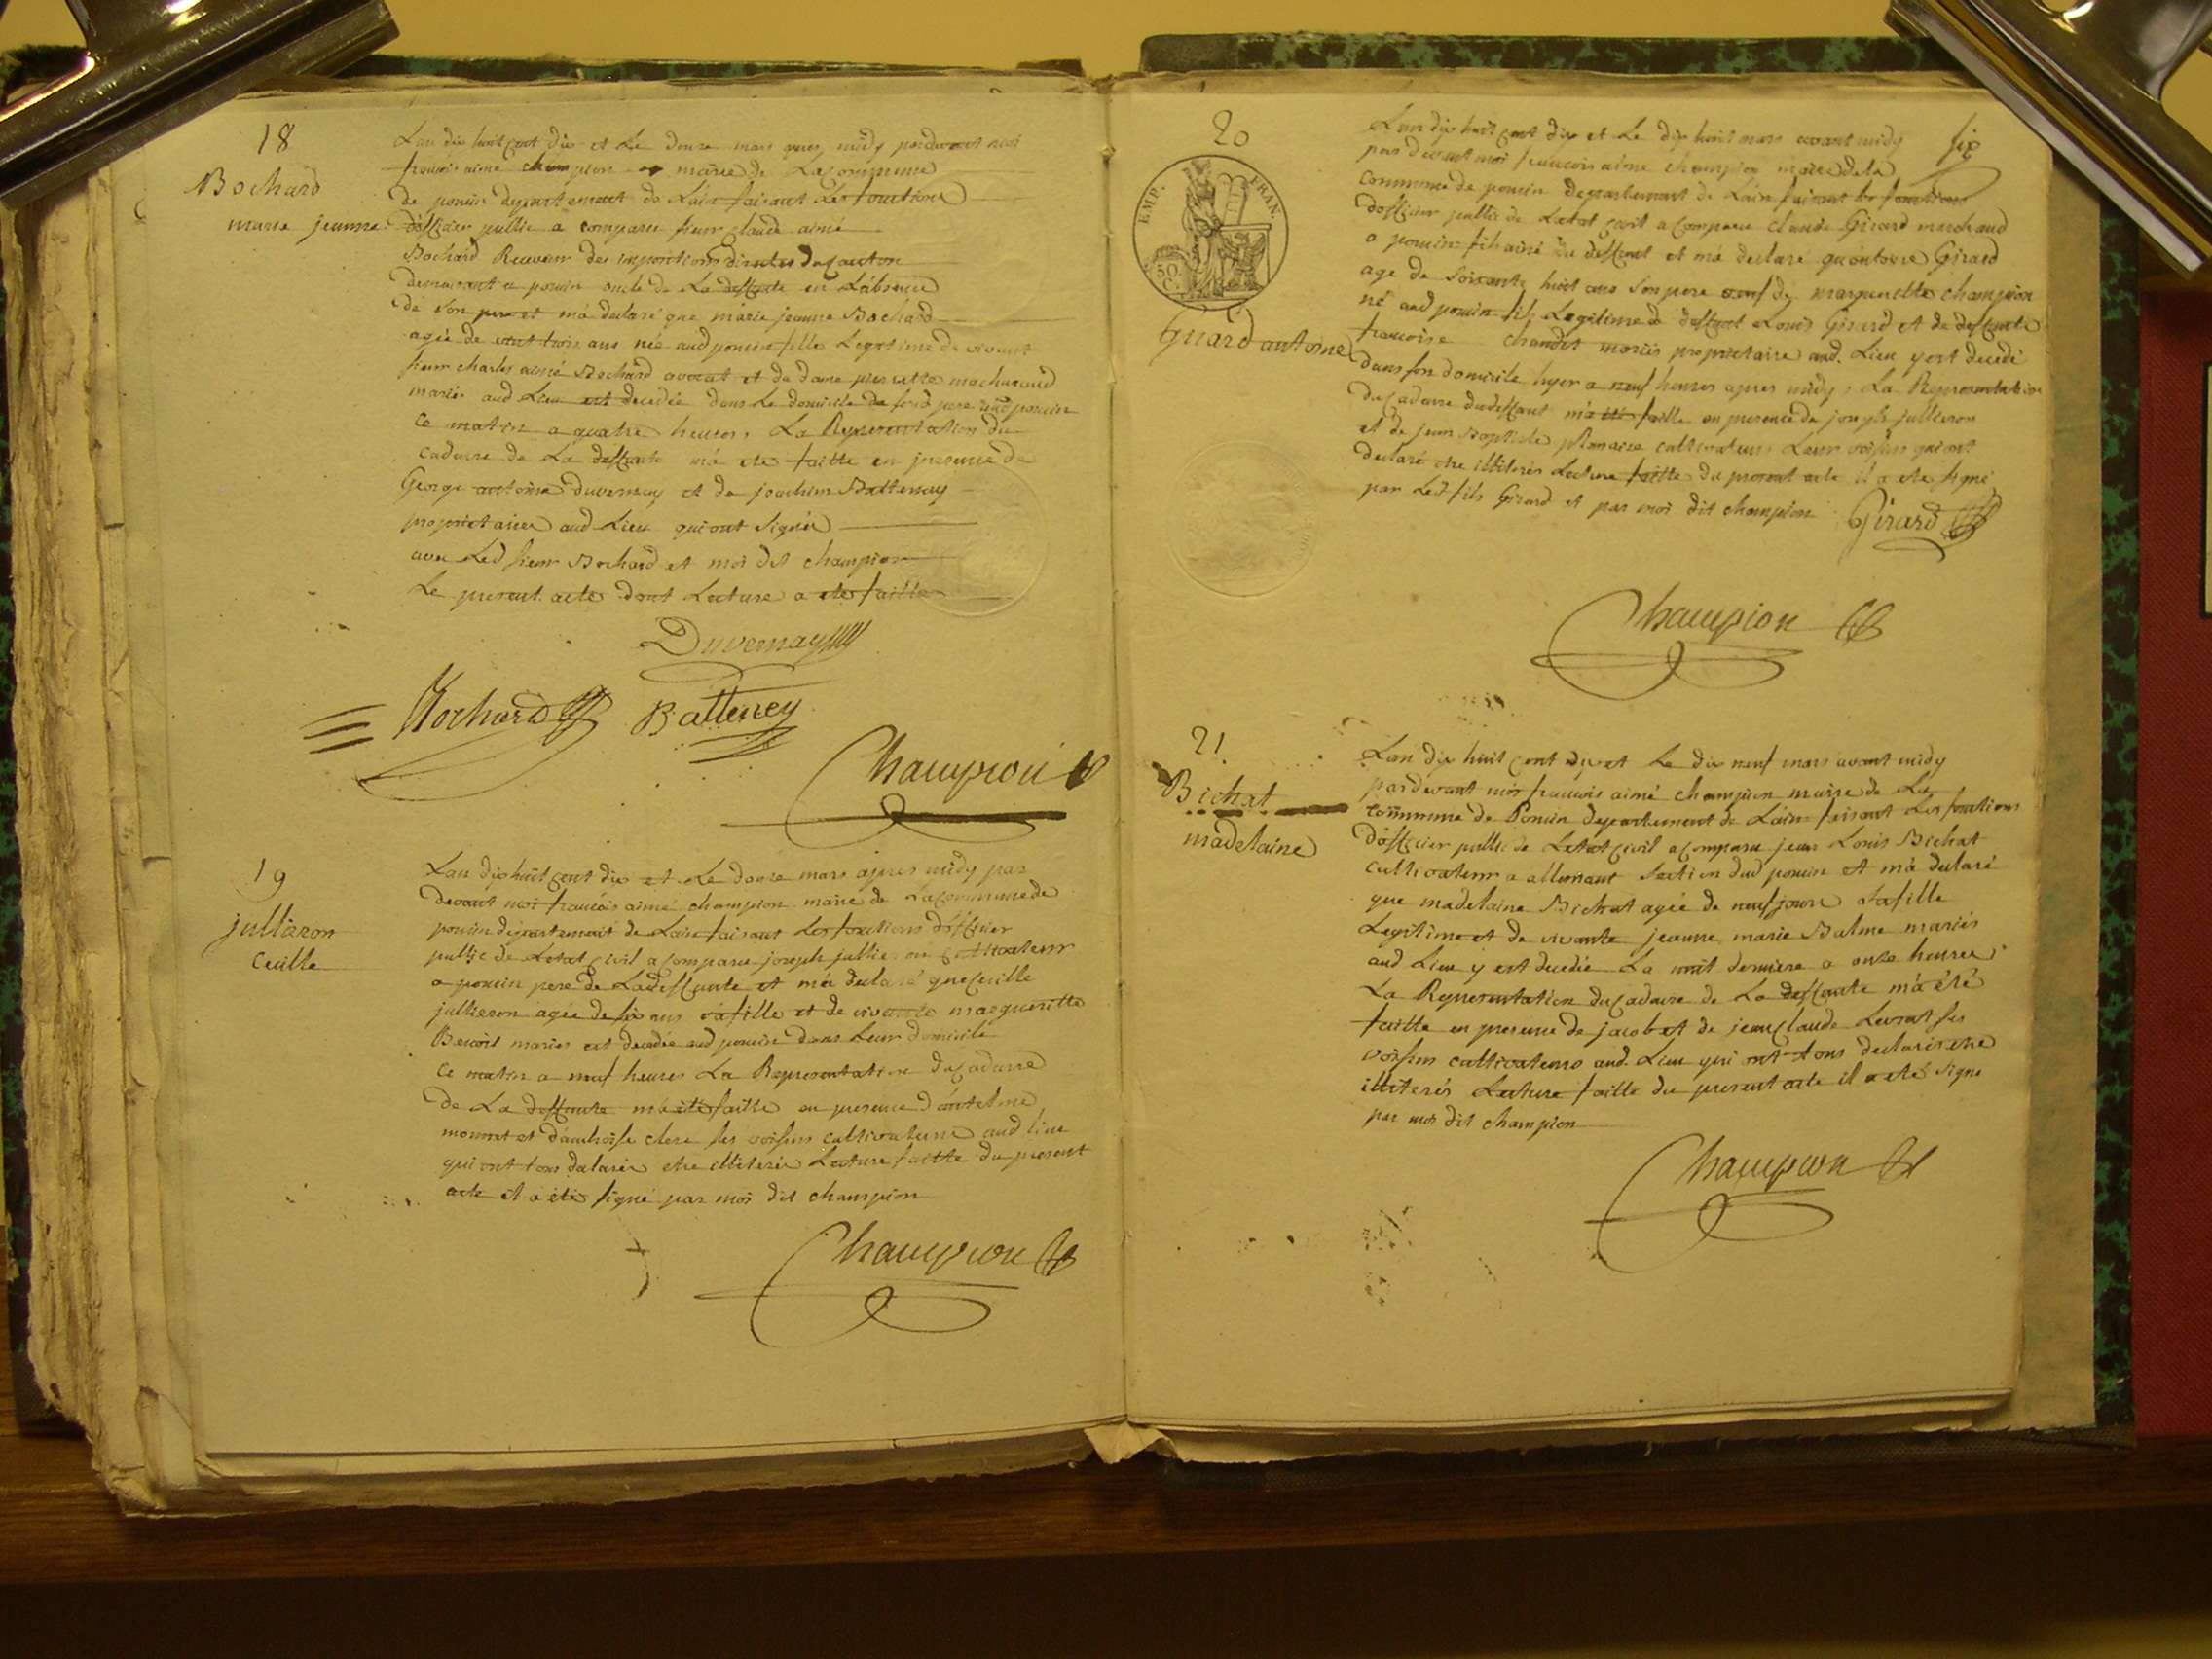 18
Bochard
marie jeanne
Lan dix huit cent dix et Le douze mars apres midy pardevant moi
francois aimé champion maire de La Commune
de poncin departement de Lain faisant Les fonctions
dofficier public a comparu sieur claude aimé
Bochard Receveur des impositions directes du Canton
demeurant a poncin oncle de La deffunte en Labsence
de son pere et ma declaré que marie jeanne Bochard
agée de vent trois ans née aud poncin fille Legitime de vivant
sieur charles aimé Bochard avocat et de dame pierrette
mariés aud Lieu est decedée dans Le domicile de sond pere aud poncin
Ce matin a quatre heures, La Representation du
cadavre de La deffunte ma ete faitte en presence de
George antoine Duvernay et de joachim Battenay
proprietaires aud Lieu qui ont Signés
avec Led sieur Bochard et moi dit champion
Le present acte dont Lecture a ete faitte
Duvernay
Bochard Batteney
Champion
19
jullieron
Cecille
Lan dix huit cent dix et Le douze mars apres midy par
devant moi francois aimé champion maire de La Commune de
poncin departement de Lain faisant Les fonctions dofficier
public de Letat Civil a comparu joseph jullieron Cultivateur
a poncin pere de La deffunte et ma declaré que Cecille
jullieron agée de six ans sa fille et de vivante marguerite
Benoit mariés est decedée aud poncin dans Leur domicile
Ce matin a neuf heures La Representation du Cadavre
de La deffunte ma ete faitte en presence dantelme
monnet et dambroise clere ses voisins cultivateurs aud lieu
qui ont tous declarés etre illiterés Lecture faitte du present
acte il a été signé par moi dit champion
Champion
20
EMP. FRAN.
50 C.
Girard antoine
Lan dix huit cent dix et Le dix huit mars avant midy
six
par devant moi francois aimé champion maire de la
commune de poncin departement de Lain faisant les fonctions
dofficier public de Letat civil a comparu claude Girard marchand
a poncin fils ainé du deffunt et ma declaré quantoine Girard
age de soixante huit ans son pere veuf de margueritte champion
né aud poncin fils Legitime de deffunt Louis Girard et de deffunte
francoise chandet mariés proprietaire aud. Lieu y est decedé
dans son domicile hyer a neuf heures apres midy, La Representation
du Cadavre du deffunt ma été faitte en presence de joseph jullieron
et de jean Baptiste cultivateurs Leur voisins qui ont
declaré etre illiterés Lecture faitte du present acte il a ete signé
par Led fils Girard et par moi dit champion
Girard
Champion
21
Bichat
madelaine
Lan dix huit cent dix et Le dix neuf mars avant midy
pardevant moi francois aimé champion maire de La
commune de Poncin departement de Lain faisant Les fonctions
dofficier public de Letat civil a comparu jean Louis Bichat
cultivateur a allement Section dud poncin et ma declaré
que madelaine Bichat agée de neuf jours Sa fille
Legitime et de vivante jeanne marie Balme mariés
aud Lieu y est decedée La nuit derniere a onze heures
La Representation du Cadavre de La deffunte ma été
faitte en presence de jacob et de jean Claude Levrat ses
voisins cultivateurs aud. Lieu qui ont tous declarés etre
illiterés Lecture faitte du present acte il a eté signé
par moi dit champion
Champion